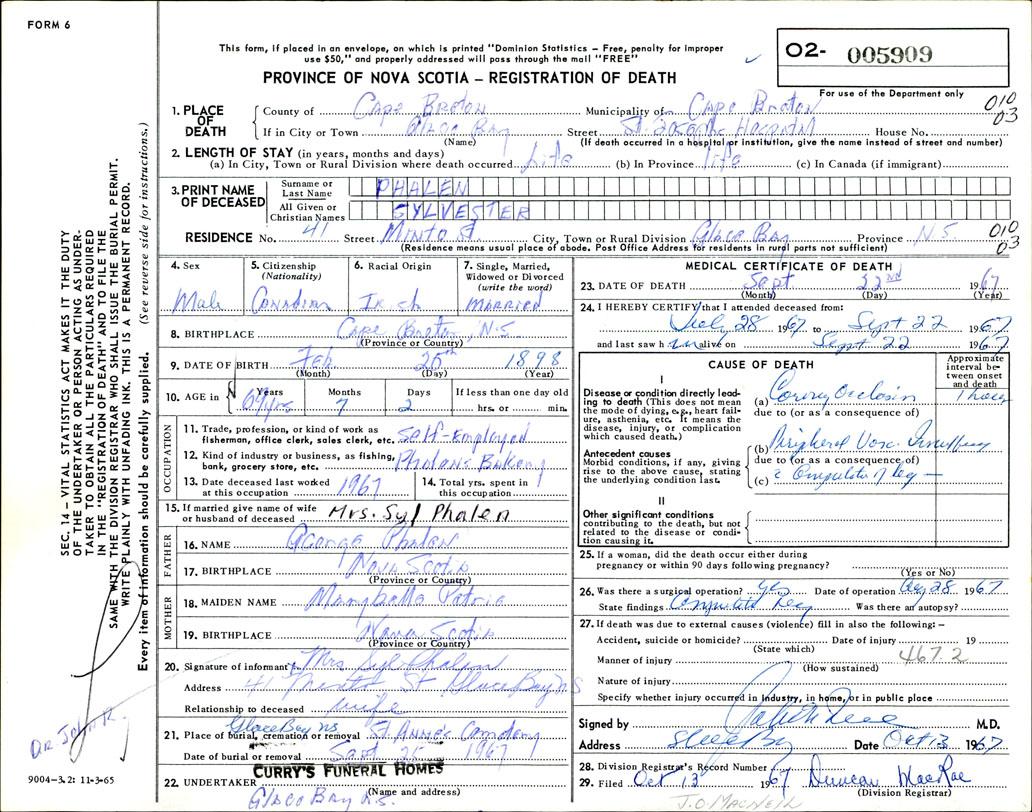 FORM 6
This form, if placed in an envelope, on which is printed "Dominion Statistics – Free, penalty for improper
use $50," and properly addressed will pass through the mail "FREE"
02- 005909
For use of the Department only
PROVINCE OF NOVA SCOTIA – REGISTRATION OF DEATH
1. PLACE OF DEATH
County of Cape Breton Municipality of Cape Breton 010
If in City or Town Glace Bay Street St. Joseph's Hospital House No. 03
(Name) (If death occurred in a hospital or institution, give the name instead of street and number)
2. LENGTH OF STAY (in years, months and days)
(a) In City, Town or Rural Division where death occurred Life (b) In Province life (c) In Canada (if immigrant)
3. PRINT NAME OF DECEASED
Surname or Last Name PHALEN
All Given or Christian Names SYLVESTER
RESIDENCE No. 41 Street Minto St City, Town or Rural Division Glace Bay Province N.S 010
(Residence means usual place of abode. Post Office Address for residents in rural parts not sufficient) 03
4. Sex
Male
5. Citizenship
(Nationality)
Canadian
6. Racial Origin
Irish
7. Single, Married,
Widowed or Divorced
(write the word)
MARRIED
8. BIRTHPLACE Cape Breton, N.S
(Province or Country)
9. DATE OF BIRTH Feb 20th 1898
(Month) (Day) (Year)
10. AGE in
Years Months Days If less than one day old
69 yrs 7 2 hrs. or min.
OCCUPATION
11. Trade, profession, or kind of work as
fisherman, office clerk, sales clerk, etc. Self-Employed
12. Kind of industry or business, as fishing,
bank, grocery store, etc. Phalens Bakery
13. Date deceased last worked
at this occupation 1967
14. Total yrs. spent in
this occupation
15. If married give name of wife
or husband of deceased Mrs. Syl Phalen
FATHER
16. NAME George Phalen
17. BIRTHPLACE Nova Scotia
(Province or Country)
MOTHER
18. MAIDEN NAME
19. BIRTHPLACE Nova Scotia
(Province or Country)
20. Signature of informant Mrs Syl Phalen
Address 41 Minto St Glace Bay NS
Relationship to deceased wife
Glace Bay NS
21. Place of burial, cremation or removal St Anne's Cemetery
Date of burial or removal Sept 25 1967
22. UNDERTAKER CURRY'S FUNERAL HOMES
(Name and address)
Glace Bay N.S.
MEDICAL CERTIFICATE OF DEATH
23. DATE OF DEATH Sept 22ND 1967
(Month) (Day) (Year)
24. I HEREBY CERTIFY that I attended deceased from:
July 28 1967 to Sept 22 1967
and last saw him alive on Sept 22 1967
CAUSE OF DEATH
Approximate
interval be-
tween onset
and death
I
Disease or condition directly lead-
ing to death (This does not mean
the mode of dying, e.g., heart fail-
ure, asthenia, etc. It means the
disease, injury, or complication
which caused death.)
(a) Occlusion 1 hour
due to (or as a consequence of)
Antecedent causes
Morbid conditions, if any, giving
rise to the above cause, stating
the underlying condition last.
(b) Peripheral Vasc. Insuffiency
due to (or as a consequence of)
(c) of leg
II
Other significant conditions
contributing to the death, but not
related to the disease or condi-
tion causing it.
25. If a woman, did the death occur either during
pregnancy or within 90 days following pregnancy?
(Yes or No)
26. Was there a surgical operation? Yes Date of operation Aug 28 1967
State findings Leg Was there an autopsy?
27. If death was due to external causes (violence) fill in also the following: –
Accident, suicide or homicide? Date of injury 19
(State which)
467.2
Manner of injury
(How sustained)
Nature of injury
Specify whether injury occurred in industry, in home, or in public place
Signed by M.D.
Address Glace Bay Date Oct 13 1967
28. Division Registrar's Record Number
29. Filed Oct 13 1967 Duncan MacRae
(Division Registrar)
J.O. MACNEIL
SEC. 14 – VITAL STATISTICS ACT MAKES IT THE DUTY
OF THE UNDERTAKER OR PERSON ACTING AS UNDER-
TAKER TO OBTAIN ALL THE PARTICULARS REQUIRED
IN THE "REGISTRATION OF DEATH" AND TO FILE THE
SAME WITH THE DIVISION REGISTRAR WHO SHALL ISSUE THE BURIAL PERMIT.
WRITE PLAINLY WITH UNFADING INK. THIS IS A PERMANENT RECORD.
Every item of information should be carefully supplied. (See reverse side for instructions.)
DR JOHN R.
9004–3.2: 11-3-65